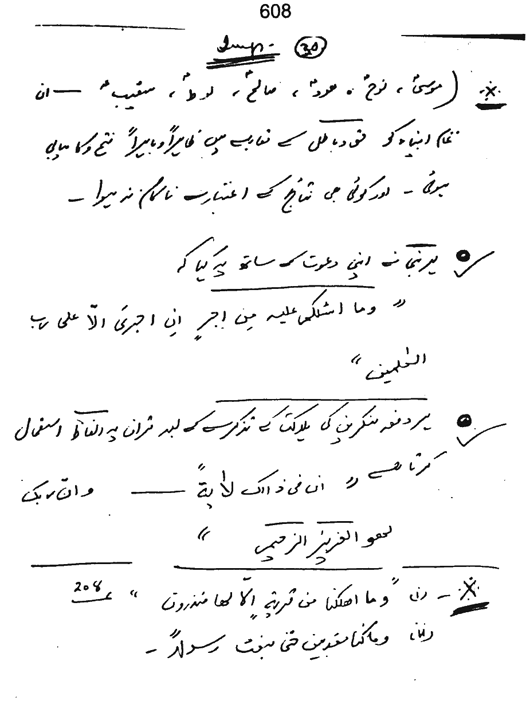 608
Imp. 30
※ (موسیٰؑ ، نوحؑ ، ھودؑ ، صالحؑ ، لوطؑ ، شعیبؑ — ان
تمام انبیاء کو قوۃ باطل کے مقابلے میں ظاہراً و باہراً فتح و کامیابی
ہوئی - اور کوئی بھی نتائج کے اعتبار سے ناکام نہ ہوا -
ہر نبی نے اپنی دعوت کے ساتھ یہ کہا کہ
" وما اسئلکم علیہ من اجر ان اجری الّا علی رب
العٰلمین "
ہر دفعہ منکرین کی ہلاکت کے تذکرے کے بعد قرآن یہ الفاظ استعمال
کرتا ہے " ان فی ذالک لآیۃً — وانّ ربک
لھو العزیز الرحیم "
※ - "وما اھلکنا من قریۃٍ الّا لھا منذرون " 208
وما کنا معذبین حتی نبعث رسولاً -